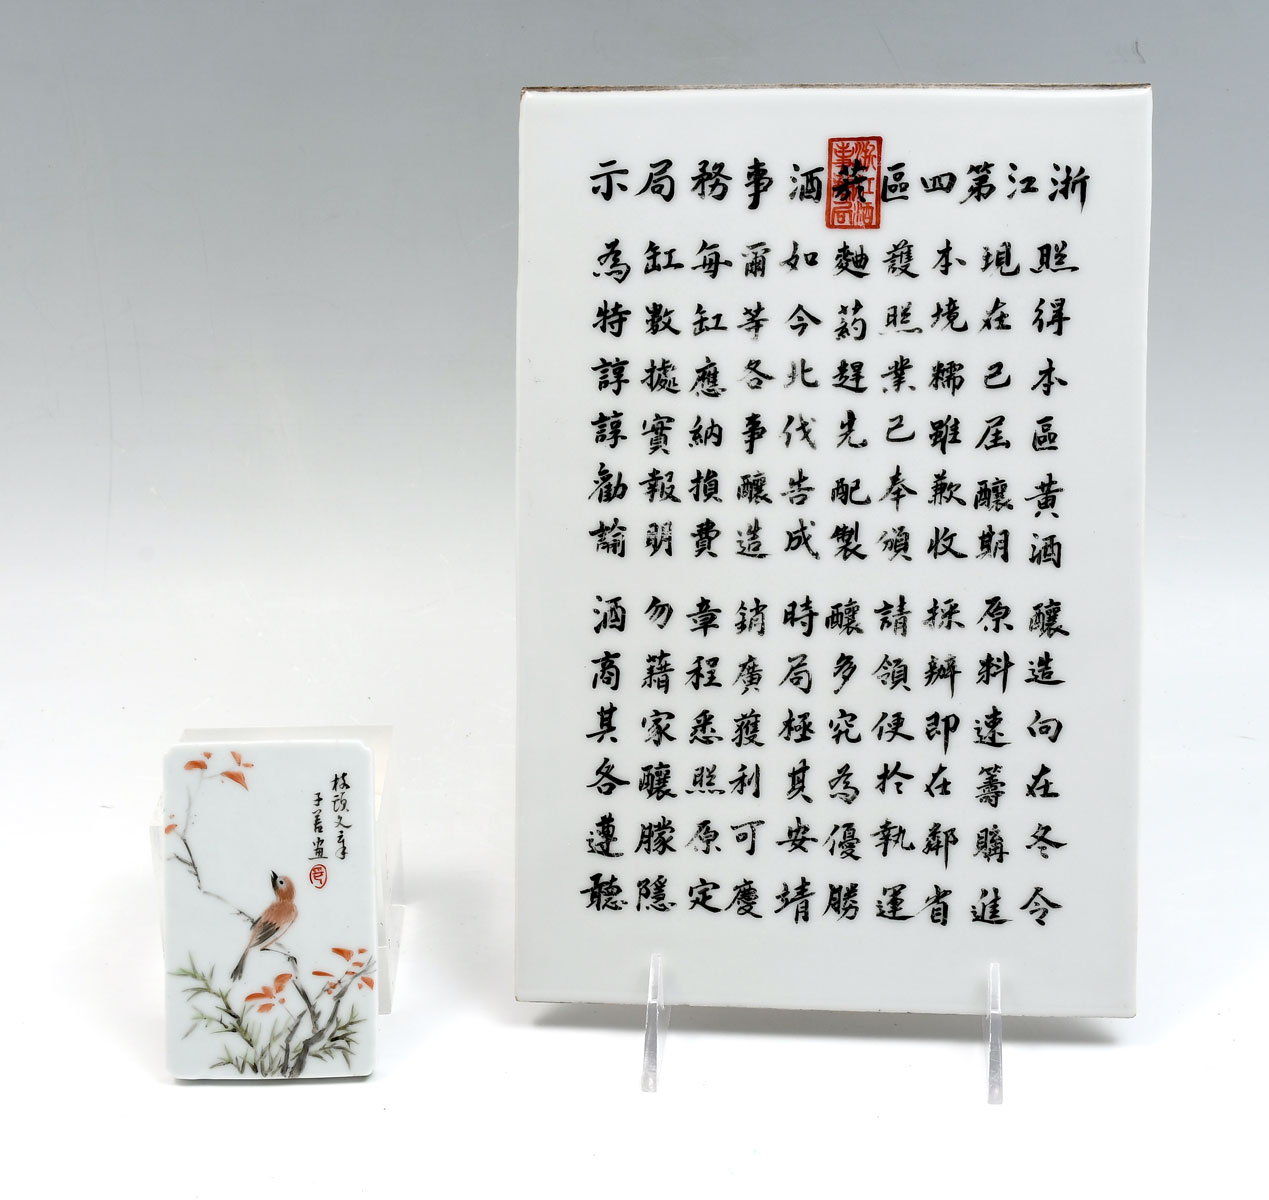 浙江第四區菸酒事務局示
照得本區黃酒 釀造向在冬令
現在已屆釀期 原料速籌購進
本境糯雖歉收 採辦即在鄰省
護照業已奉頒 請領便於執運
麯葯趕先配製 釀多究為優勝
如今北伐告成 時局極其安靖
爾等各事釀造 銷廣獲利可慶
每缸應納損費 章程悉照原定
缸數據實報明 勿藉家釀朦隱
為特諄諄勸諭 酒商其各遵聽
枝頭文章
子善畫